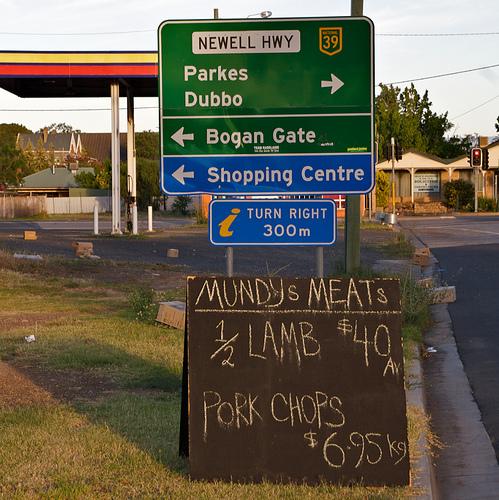 NEWELL HWY
NATIONAL
39
Parkes
Dubbo
Bogan Gate
Shopping Centre
i TURN RIGHT
300m
MUNDYs MEATs
1/2 LAMB $40
PORK CHOPS
$6.95 kg